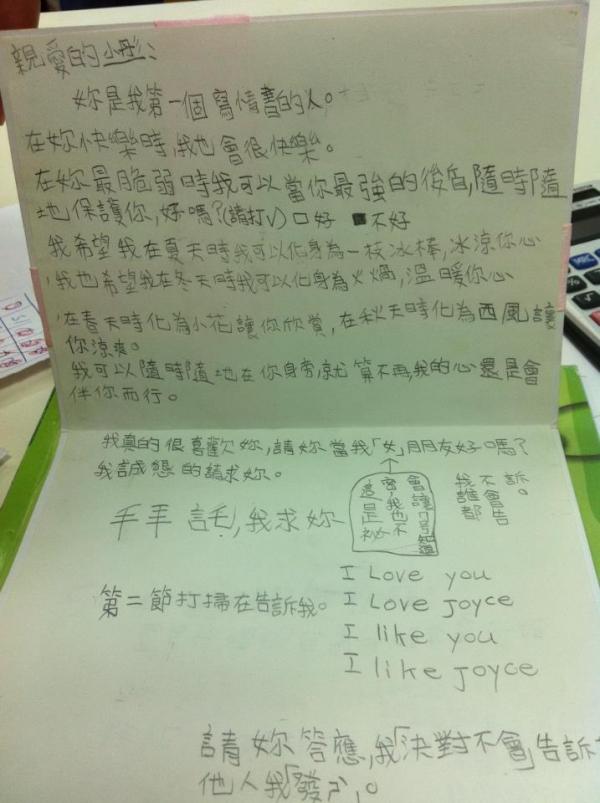 親愛的小彤:
妳是我第一個寫情書的人。
在妳快樂時,我也會很快樂。
在妳最脆弱時我可以當你最強的後盾,隨時隨
地保護你,好嗎?(請打V)□好 ■不好
我希望我在夏天時我可以化身為一枝冰棒,冰涼你心
,我也希望我在冬天時我可以化身為火鍋,溫暖你心
,在春天時化為小花讓你欣賞,在秋天時化為西風讓
你涼爽。
我可以隨時隨地在你身旁,就算不再,我的心還是會
伴你而行。
我真的很喜歡妳,請妳當我「女」朋友好嗎?
我誠懇的請求妳。
拜託,我求妳
這是祕
密,我也不
會讓
我不
會告
訴。
誰都
第二節打掃在告訴我。
I Love you
I Love Joyce
I like you
I like Joyce
請妳答應,我「決對不會」告訴
他人我「發ㄕˋ」。